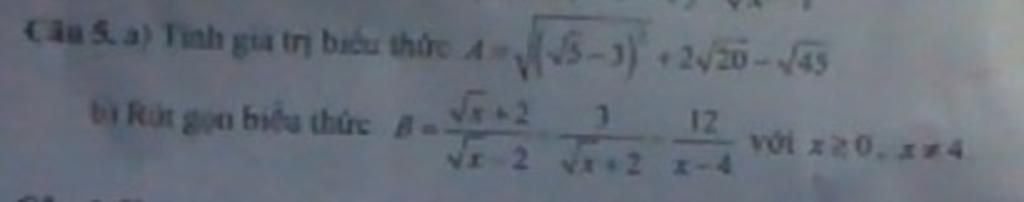 Câu 5. a) Tính giá trị biểu thức A = √((√5 - 3)²) + 2√20 - √45
b) Rút gọn biểu thức B = (√x + 2)/(√x - 2) - 3/(√x + 2) - 12/(x - 4) với x ≥ 0, x ≠ 4